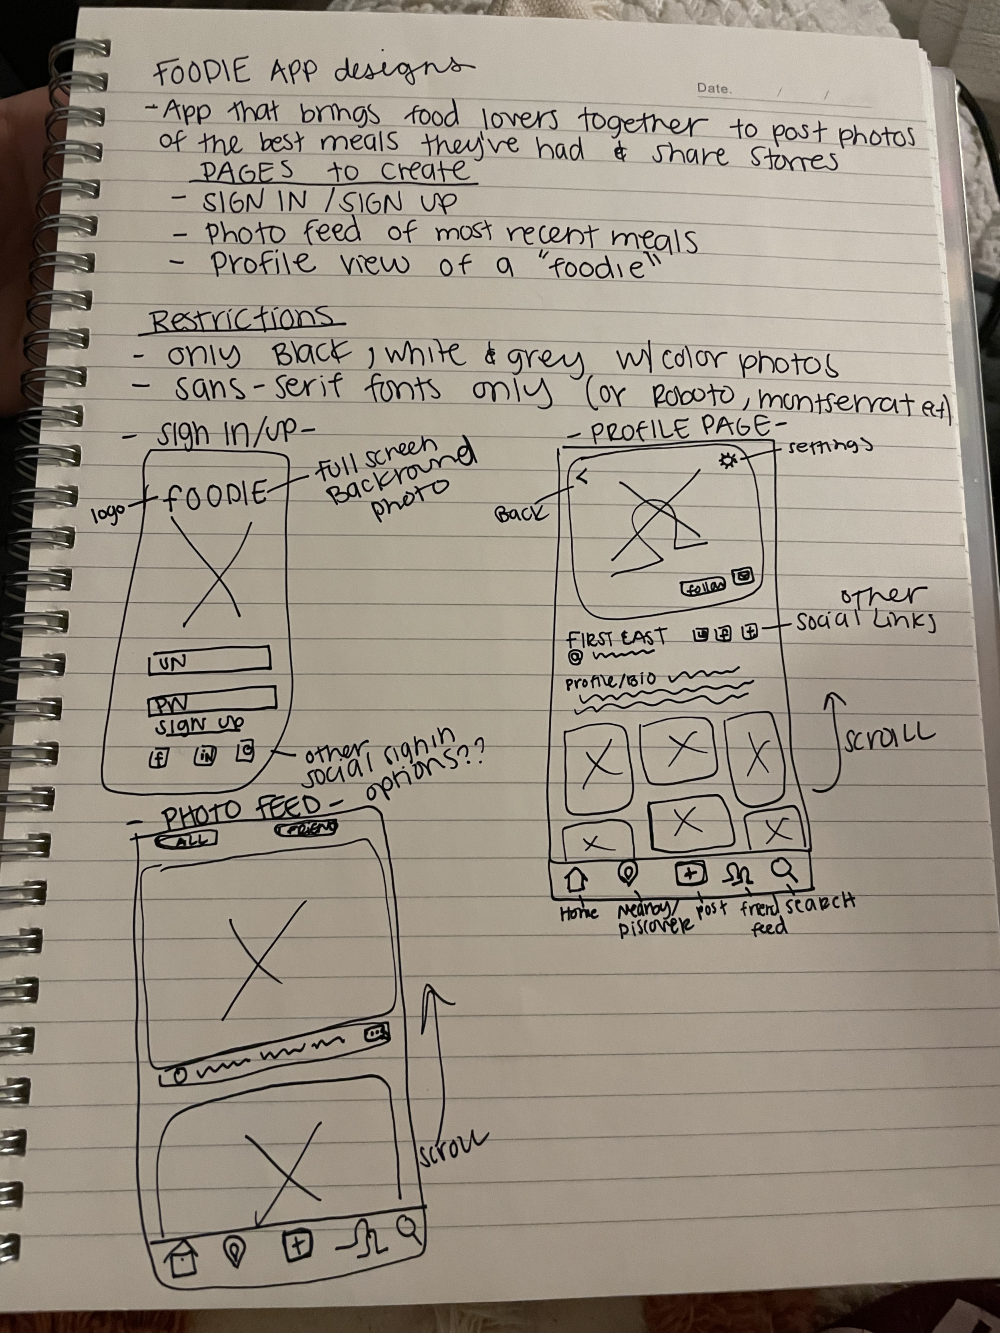 FOODIE APP designs
Date. / /
- App that brings food lovers together to post photos
of the best meals they've had & share stories
PAGES to create
- SIGN IN / SIGN UP
- Photo feed of most recent meals
- Profile view of a "foodie"
Restrictions
- only Black, white & grey w/ color photos
- sans-serif fonts only (or Roboto, montserrat ect)
- sign in/up -
logo
fOODIE
full screen
Backround
photo
UN
PW
sign up
f in
other
social sign in
options??
- PROFILE PAGE -
settings
<
Back
follow
FIRST LAST
f +
other
social links
@
Profile/Bio
scroll
+
Home
Nearby/
Discover
post
friend
feed
search
- PHOTO FEED -
ALL FRIEND
...
scroll
+